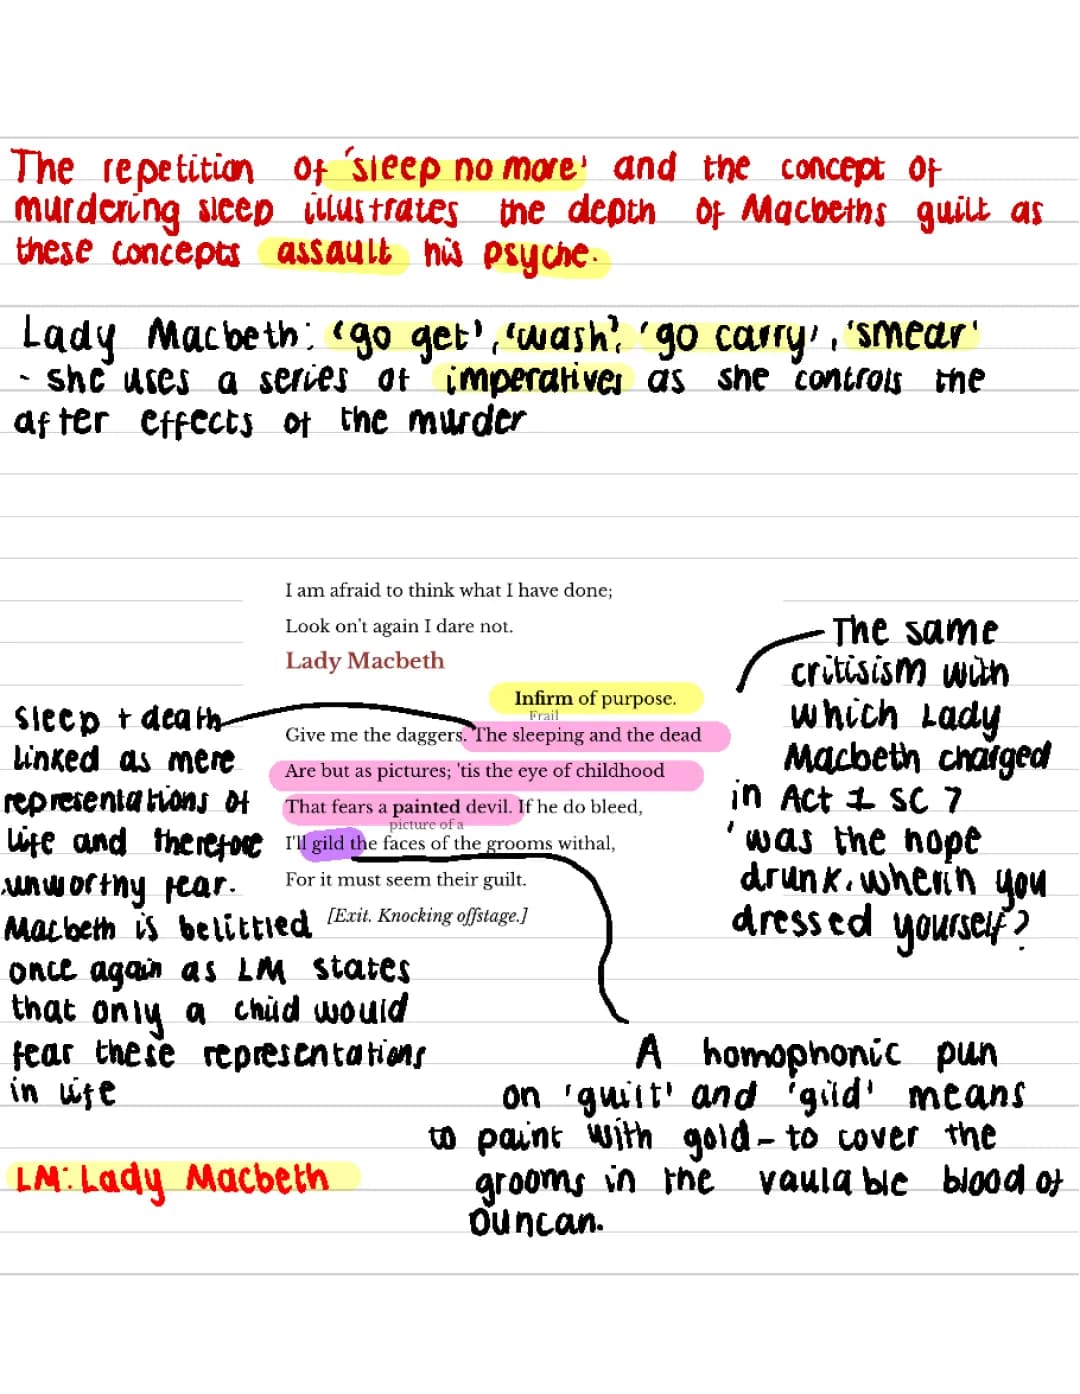 The repetition of 'sleep no more' and the concept of
murdering sleep illustrates the depth of Macbeths guilt as
these concepts assault his psyche.
Lady Macbeth: 'go get', 'wash', 'go carry', 'smear'
- she uses a series of imperatives as she controls the
after effects of the murder
I am afraid to think what I have done;
Look on't again I dare not.
Lady Macbeth
Infirm of purpose.
Frail
Give me the daggers. The sleeping and the dead
Are but as pictures; 'tis the eye of childhood
That fears a painted devil. If he do bleed,
picture of a
I'll gild the faces of the grooms withal,
For it must seem their guilt.
[Exit. Knocking offstage.]
The same
critisism with
which Lady
Macbeth charged
in Act 1 SC 7
'was the hope
drunk. wherin you
dressed yourself?
Sleep + death
linked as mere
representations of
life and therefore
unworthy fear.
Macbeth is belittled
once again as LM states
that only a child would
fear these representations
in life
LM: Lady Macbeth
A homophonic pun
on 'guilt' and 'gild' means
to paint with gold - to cover the
grooms in the vaulable blood of
Duncan.